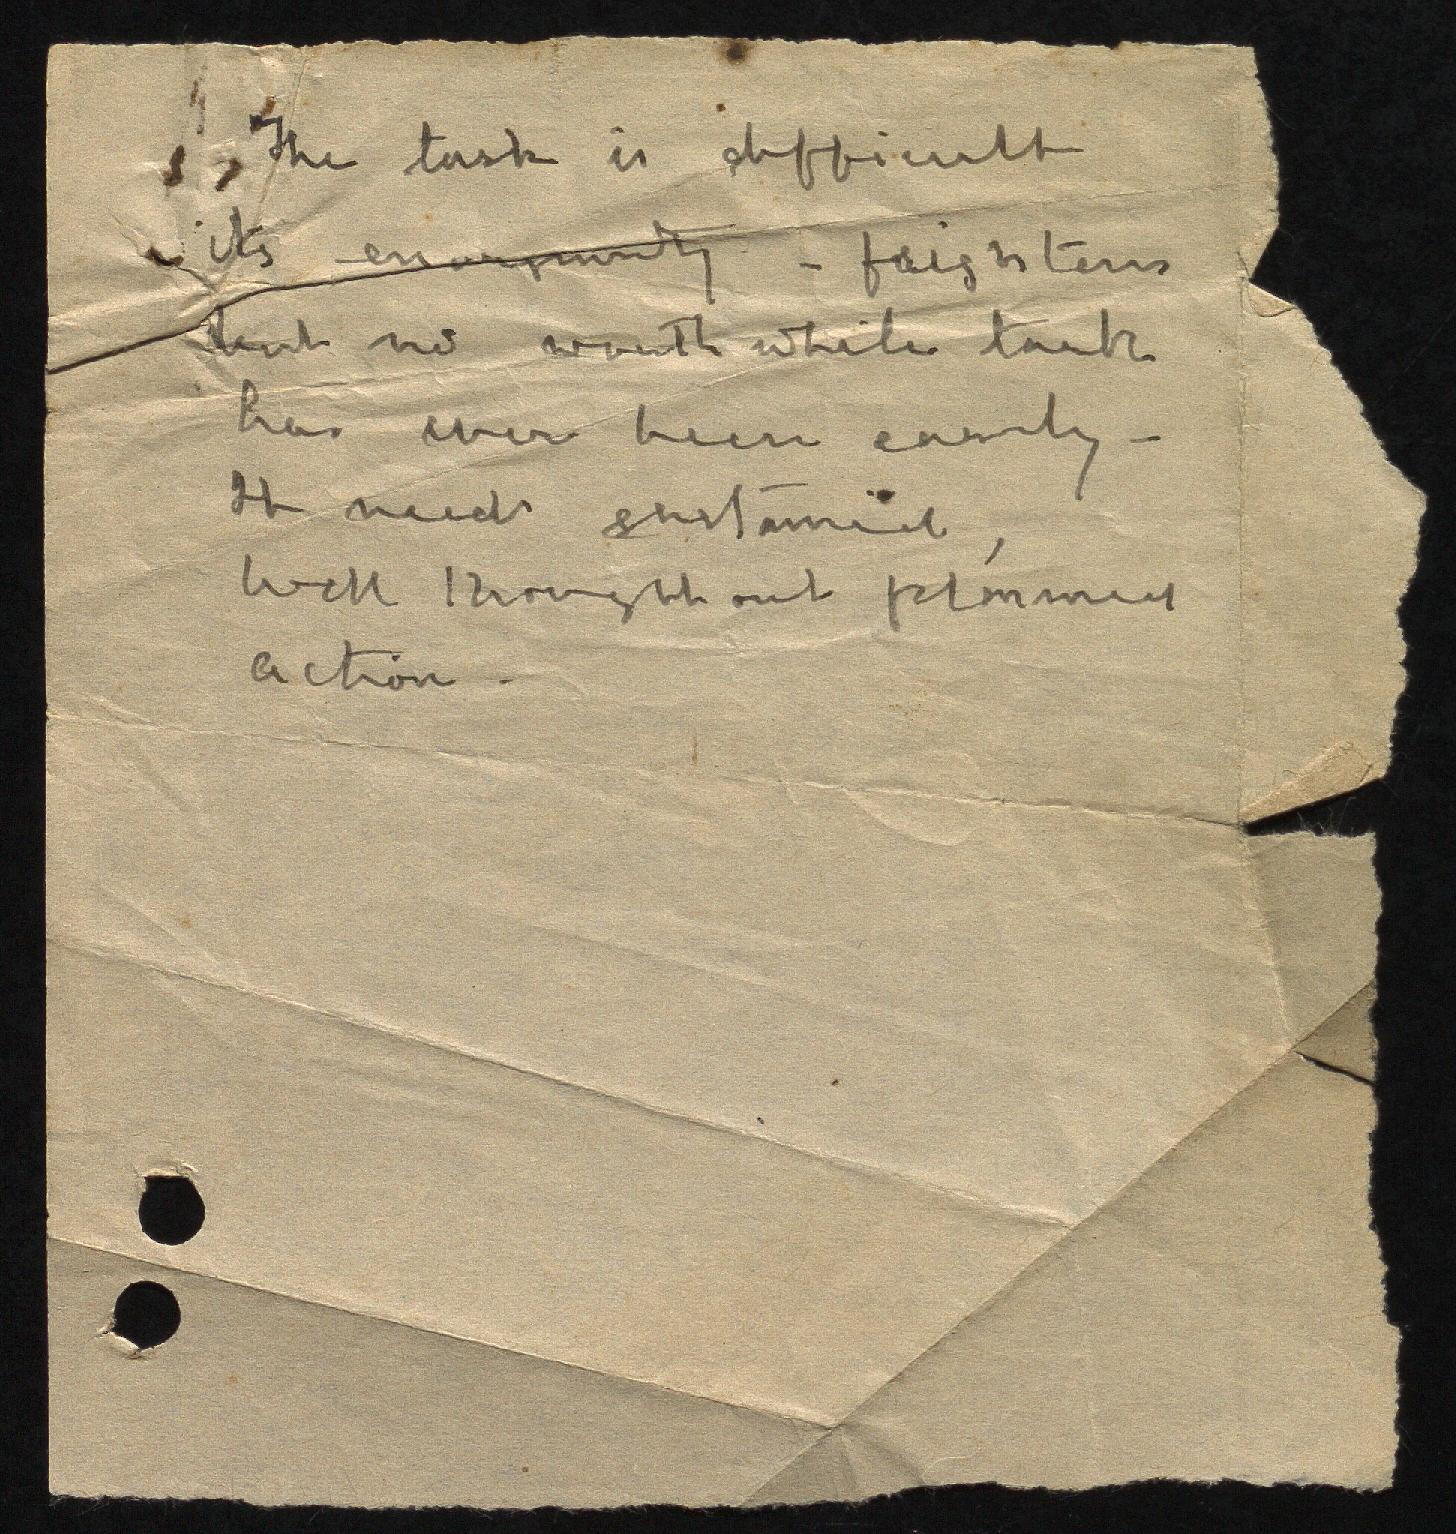 The task is difficult
its enormity - frightens
but no worth while task
has ever been easy -
It needs sustained,
well thought out planned
action -